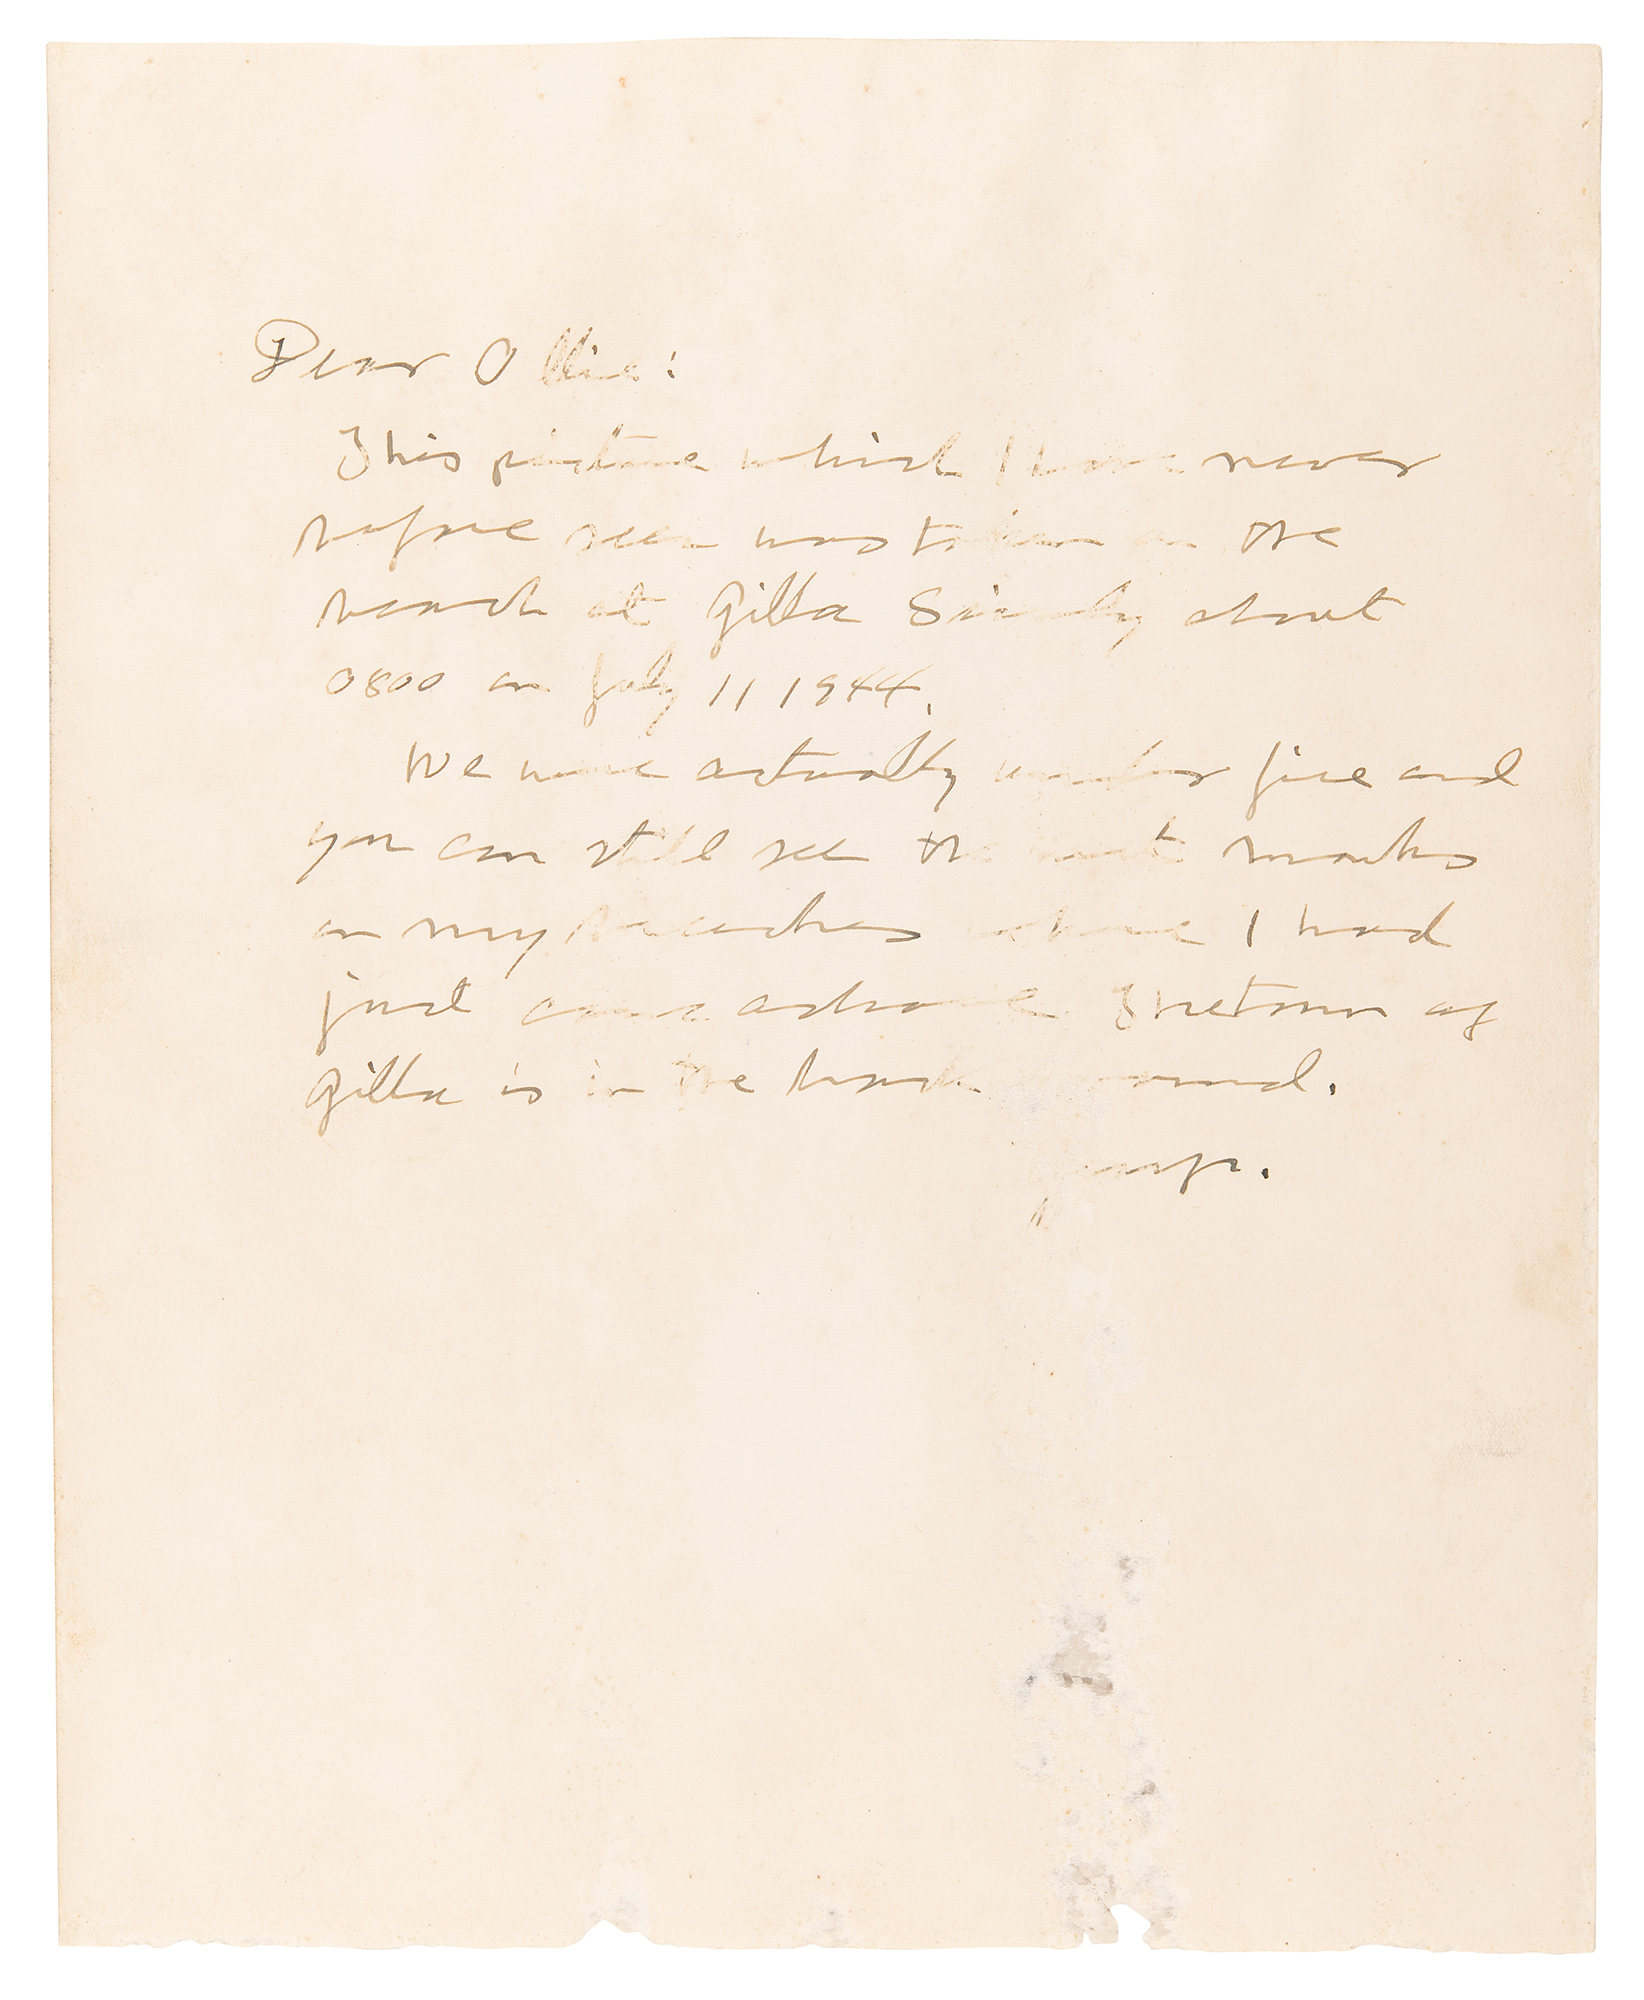 Dear Ollie:
This picture which I have never
before seen was taken on the
beach at Gilla Sicily about
0800 on July 11 1944.
We were actually under fire and
you can still see the wet marks
on my breaches where I had
just come ashore The town of
Gilla is in the back ground.